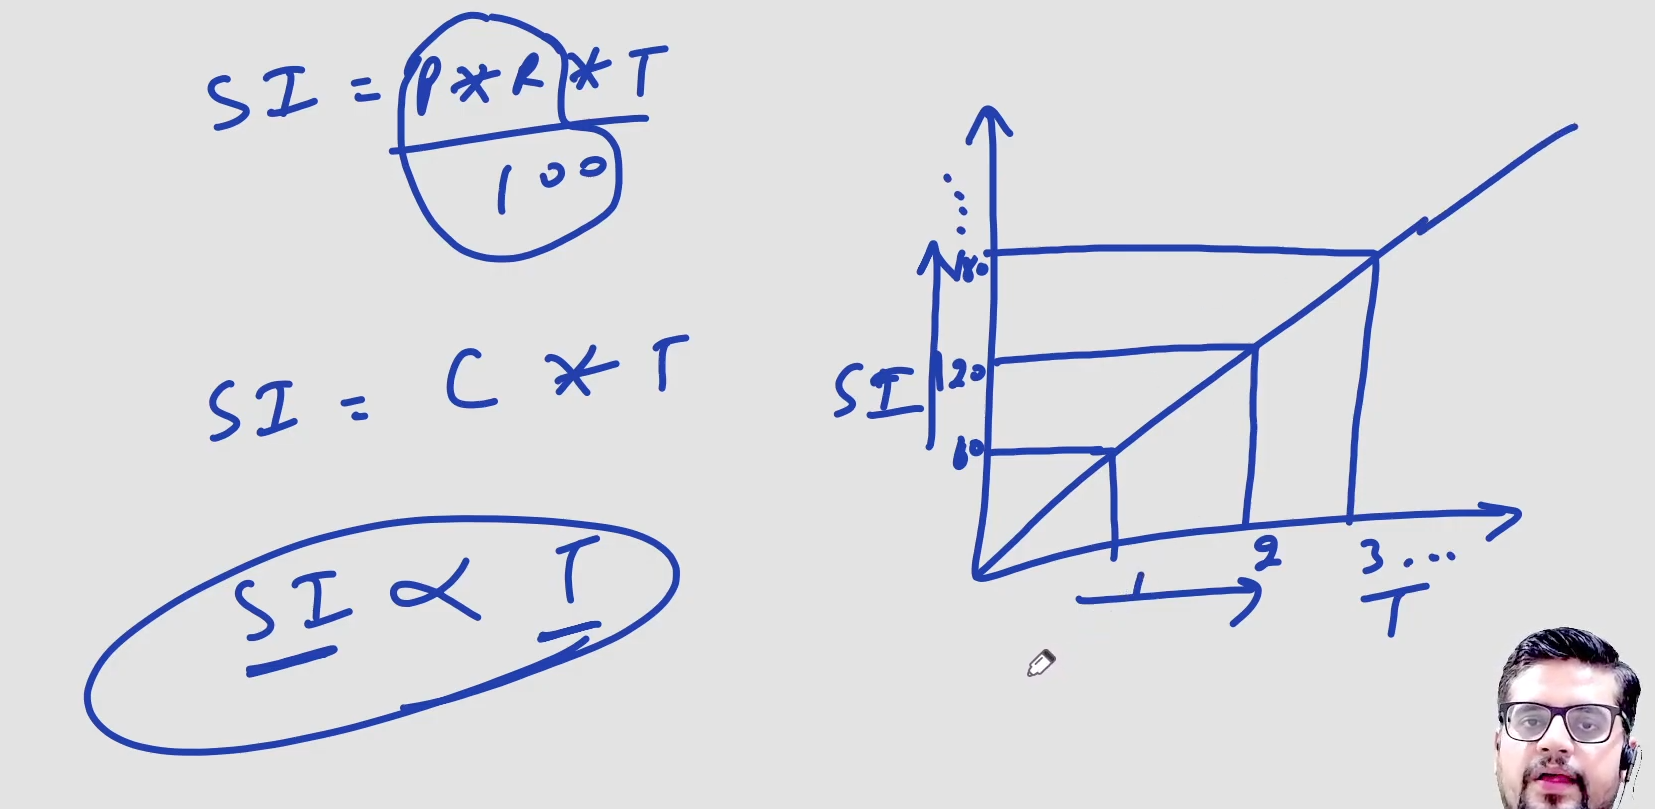 SI = P * R * T
100
SI = C * T
SI ∝ T
180
120
SI
60
1 2 3 ...
T